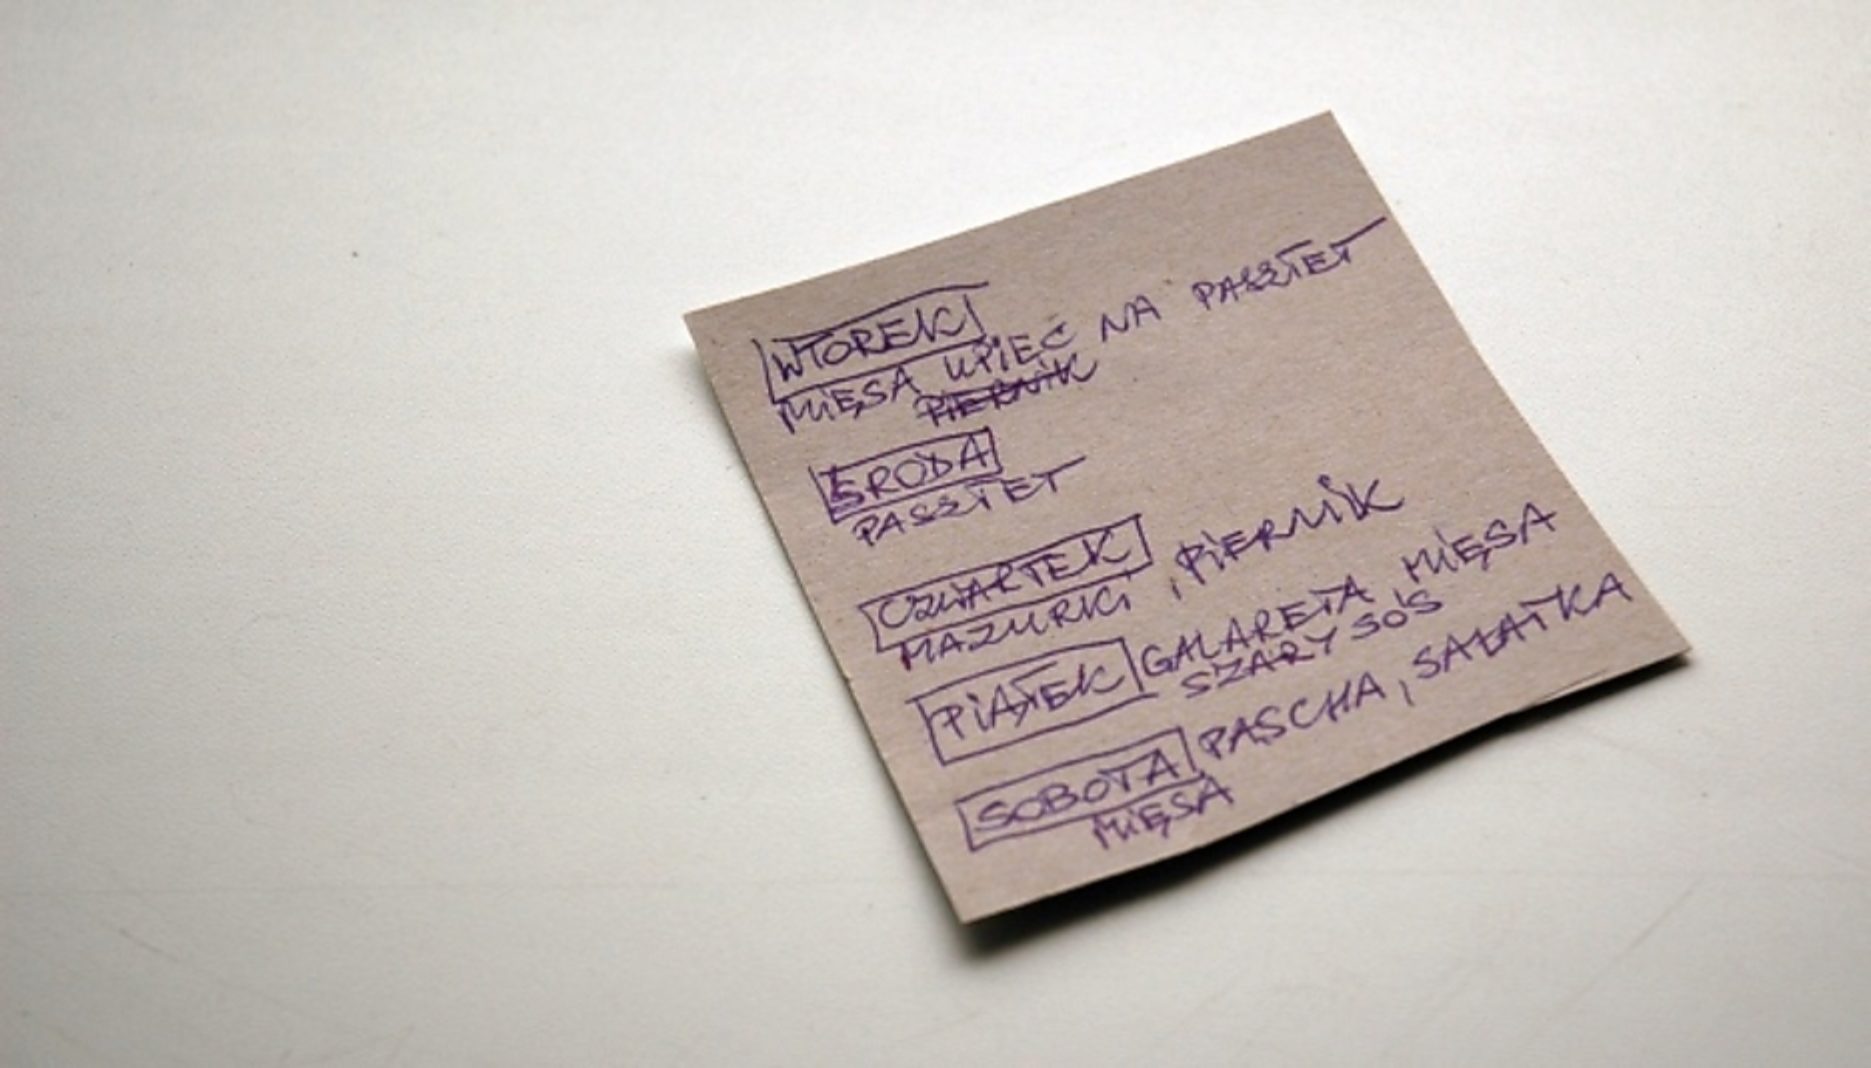 WTOREK
MIĘSA UPIEC NA PASZTET
PIERNIK
ŚRODA
PASZTET
CZWARTEK
MAZURKI, PIERNIK
PIĄTEK GALARETA, MIĘSA
SZARY SOS
SOBOTA PASCHA, SAŁATKA
MIĘSA